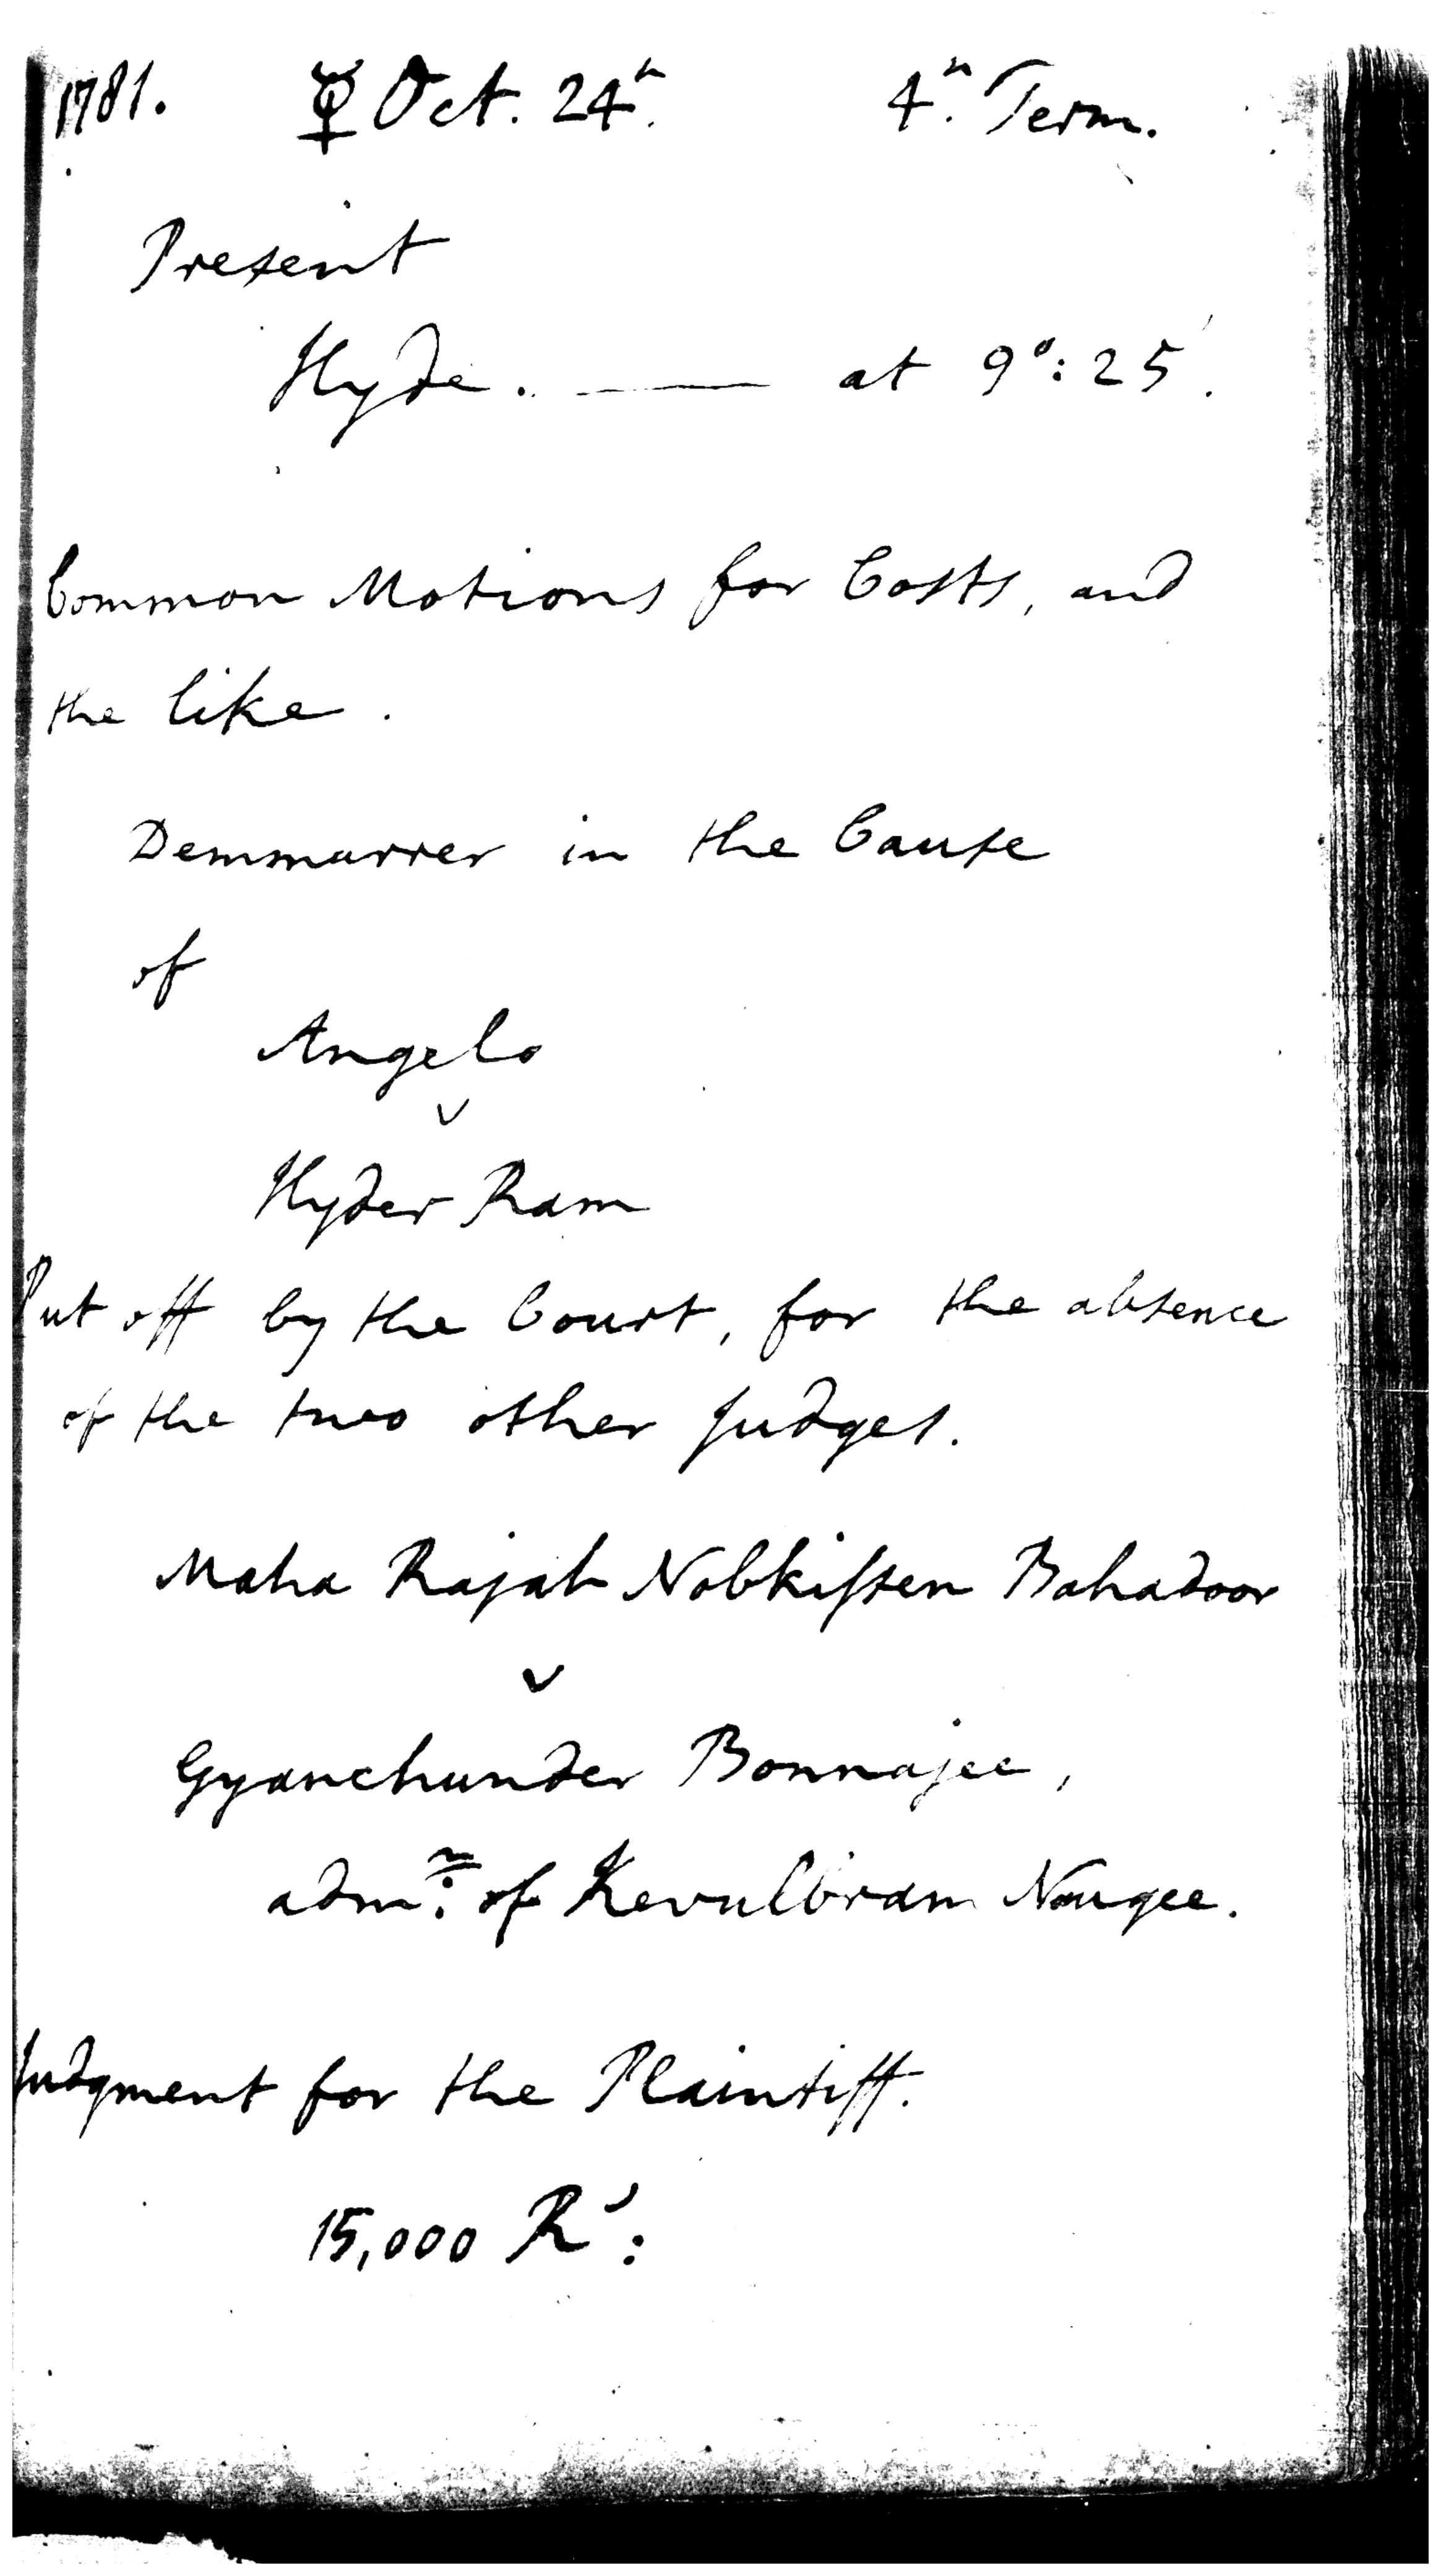 1781. ☿ Oct. 24th. 4th. Term.
Present
Hyde. — at 9°: 25'.
Common Motions for Costs, and
the like.
Demmurrer in the Cause
of
Angelo
v
Hyder Ram
Put off by the Court, for the absence
of the two other Judges.
Maha Rajah Nobkissen Bahadoor
v
Gyanchunder Bonnajee,
admr. of Kevulbram Nougee.
Judgment for the Plaintiff.
15,000 Rs: